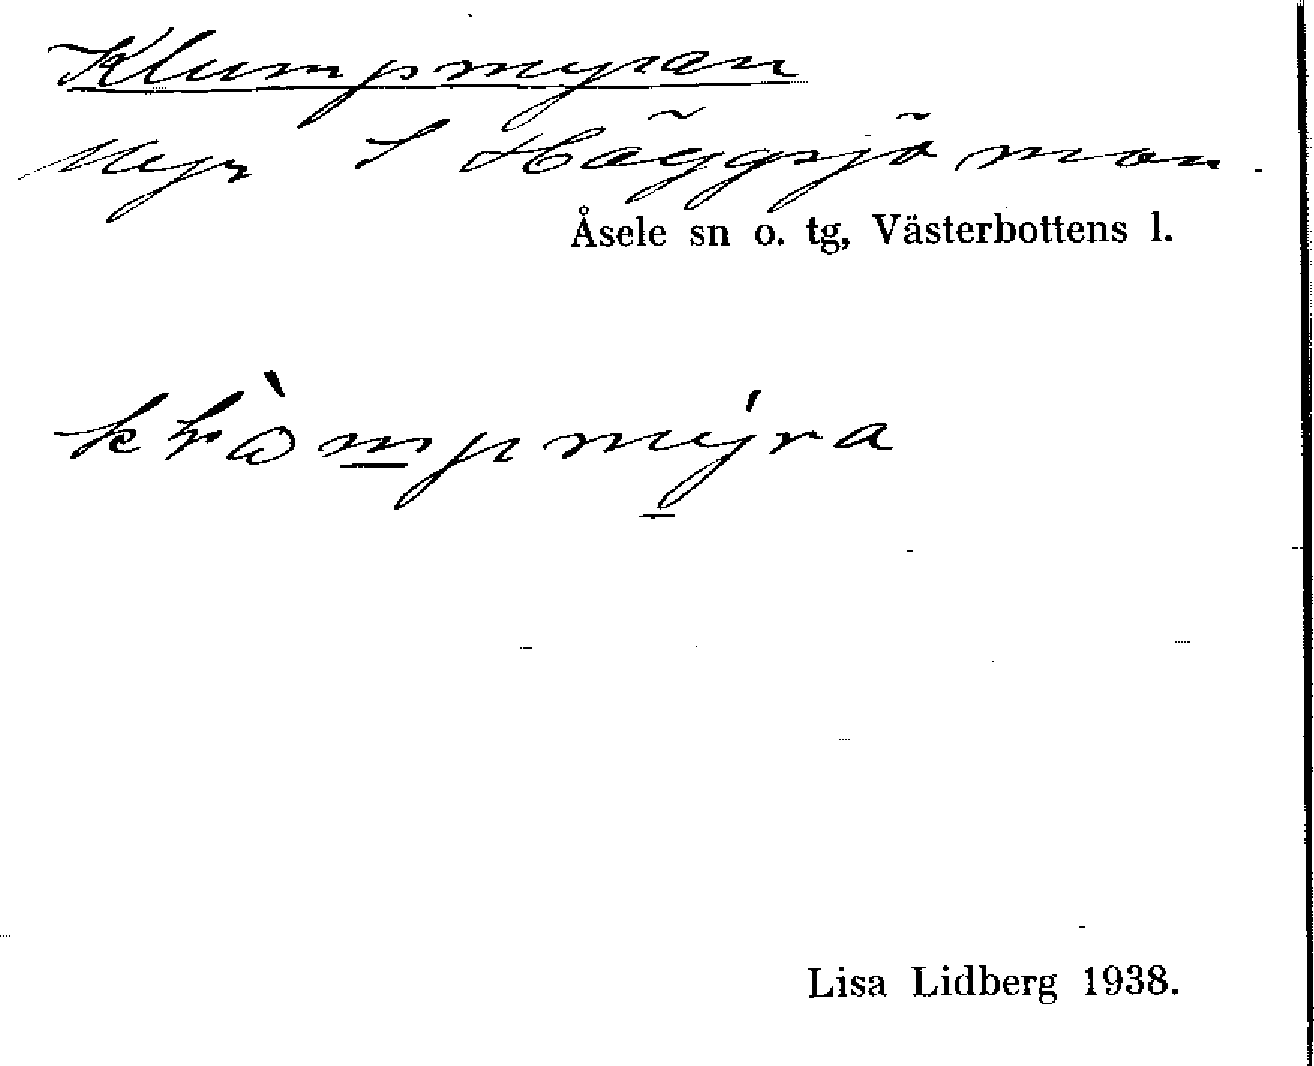 Klumpmyran
Myr S Häggsjömon.
Åsele sn o. tg, Västerbottens l.
Lisa Lidberg 1938.